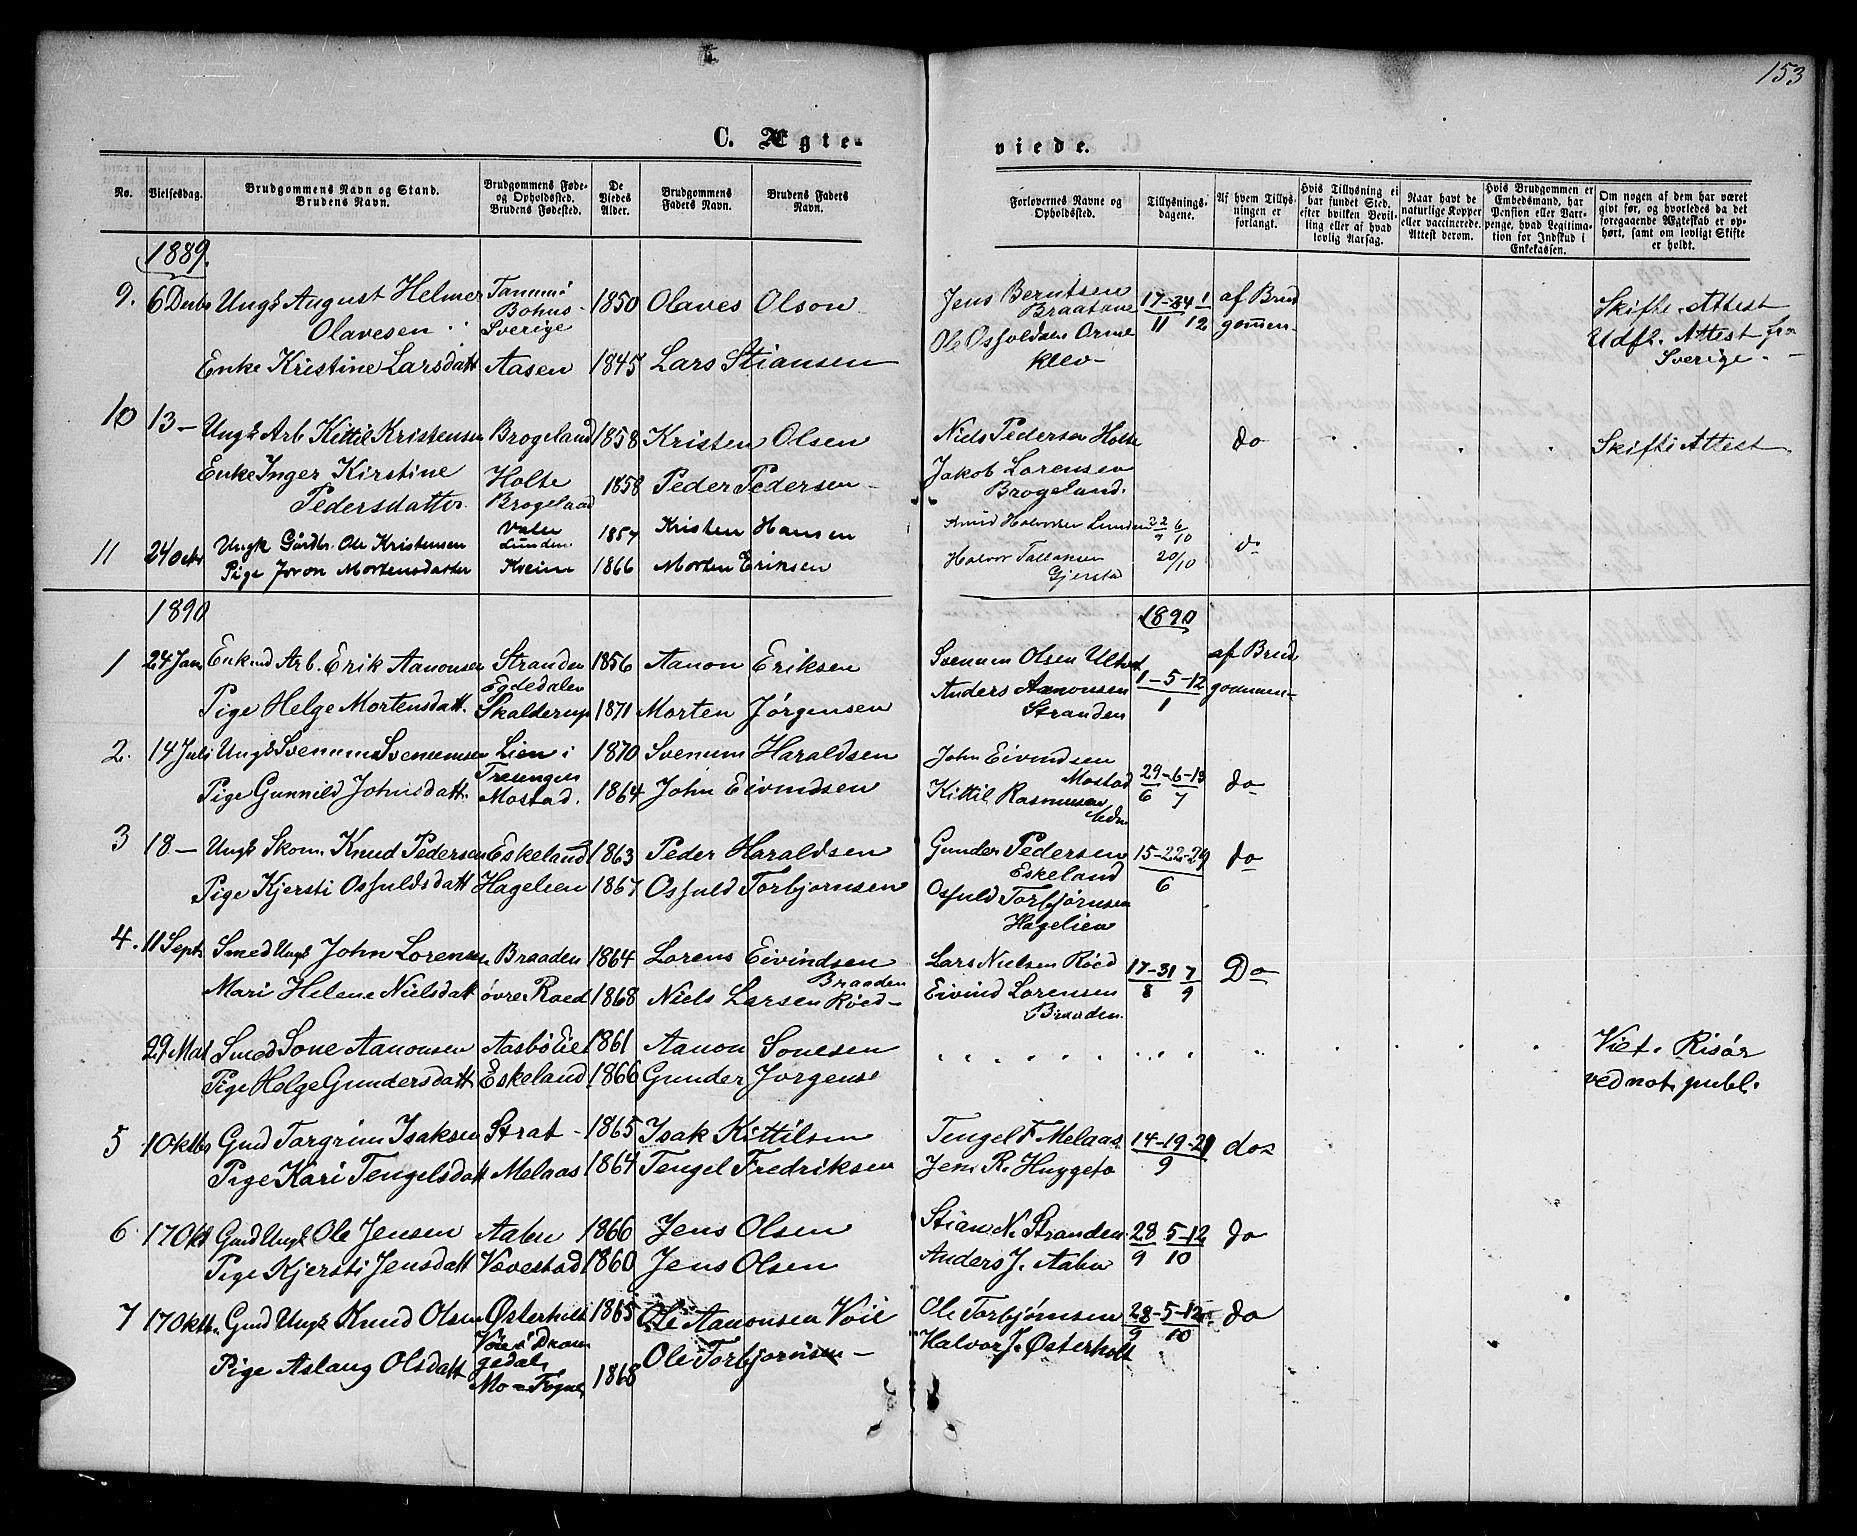 153
C. Ægte-
viede.
No.
Vielsesdag.
Brudgommens Navn og Stand.
Brudens Navn.
Brudgommens Føde-
og Opholdssted.
Brudens Fødested.
De
Viedes
Alder.
Brudgommens
Faders Navn.
Brudens Faders
Navn.
Forlovernes Navne og
Opholdssted.
Tillysnings-
dagene.
Af hvem Tillys-
ningen er
forlangt.
Hvis Tillysning ei
har fundet Sted,
efter hvilken Bevil-
ling eller af hvad
lovlig Aarsag.
Naar havt de
naturlige Kopper
eller vaccinerede.
Attest derom.
Hvis Brudgommen er
Embedsmand, har
Pension eller Vart-
penge, hvad Legitima-
tion for Indskud i
Enkekassen.
Om nogen af dem har været
gift før, og hvorledes da det
foregaaende Ægteskab er op-
hørt, samt om lovligt Skifte
er holdt.
1889.
9. 6 Decbr Ungk August Helmer Tanum i 1850 Olaves Olson Jens Berntsen 17-24 1 af Brud Skifte Attest
Olavesen Bohus- Braatane 11 12 gommen- Udfl. Attest fra
Sverige Ole Osfuldsen Orme Sverige.-
Enke Kristine Larsdatt Aasen 1845 Lars Stiansen klev-
10 13- Ungk Arb Kittil Kristensen Brogeland 1858 Kristen Olsen Niels Pedersen Holte do Skifte Attest.
Enke Inger Kirstine Holte 1858 Peder Pedersen- Jakob Lorensen
Pedersdatter Brogeland Brogeland.
11 24 Octr Ungk Gårdbr. Ole Kristensen Lunden 1857 Kristen Hansen Knud Halvorsen Lunden 22/9 6/10 do
Pige Joron Mortensdatter Kveim 1866 Morten Eriksen Halvor Tallaksen 20/10
Gjerstad
1890 1890
1 24 Jan Enkmd Arb. Erik Aanonsen Stranden 1856 Aanon Eriksen Svenum Olsen af Brud
Egdedalen Anders Aanonsen 1-5-12 gommen-
Pige Helge Mortensdatt. Skalderup 1871 Morten Jørgensen Stranden 1
2. 14 Juli Ungk Svenum Svenumsen Lien i 1870 Svenum Haraldsen John Eivindsen
Tresungen Mostad 29-6-13 do
Pige Gunnild Johnsdatt. Mostad. 1864 John Eivindsen Kittil Rasmusen 6 7
3 18- Ungk Skom. Knud Pedersen Eskeland 1863 Peder Haraldsen Gunder Pedersen 15-22-29 do
Eskeland 6
Pige Kjersti Osfuldsdatt Hagelien 1867 Osfuld Torbjornsen Osfuld Torbjørnsen
Hagelien
4. 11 Sept. Smed Ungk John Lorensen Braaden 1864 Lorens Eivindsen Lars Nielsen Røed 17-31 7 Do
Braaden 8 9
Mari Helene Nielsdatt øvre Roed 1868 Niels Larsen Røed- Eivind Lorensen
Braaden.
29 Mai Smed Sone Aanonsen Aasbö Eie 1861 Aanon Sonesen Viet. Risör
Pige Helge Gundersdatt Eskeland 1866 Gunder Jorgens ved not. publ.
5 10 Oktbr Gmd Torgrim Isaksen Strat- 1865 Isak Kittilsen Tengel F Melaas 14-19-21 do
Pige Kari Tengelsdatt Melaas 1864 Tengel Fredriksen Jens R. Huggeto 9
6 17 Okt Gmd Ungk Ole Jensen Aabu 1866 Jens Olsen Stian N. Stranden 28 5-12 do
Pige Kjersti Jensdatt Vævestad 1860 Jens Olsen Anders J. Aabu 9 10
7 17 Oktb. Gmd Ungk Knud Olsen Østerholt 1865 Ole Aanonsen Voie Ole Torbjørnsen 28-5-12 do
Voie i Dran 9 10
gedal, Halvor J. Østerholt
Pige Aslaug Olsdatt Mo- 1868 Ole Torbjornsen-